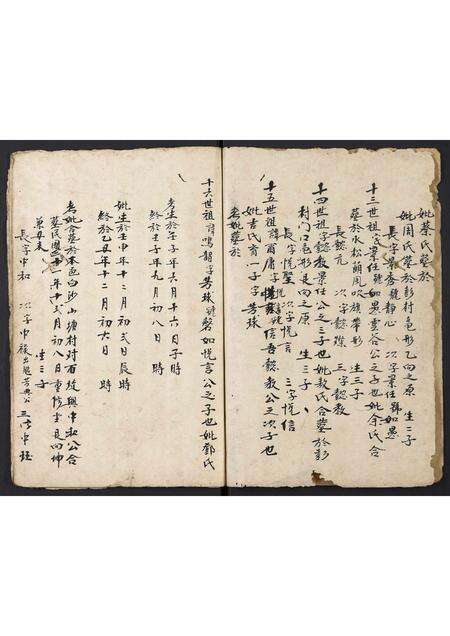 妣蔡氏墓於
妣周氏墓於彭村龜形乙向之原 生二子
長字 號靜心 次字業任號如愚
十三世祖字業任號如愚雲谷公之子也妣余氏合
墓於水松蓢鳳吹旗帶形 生三子
長懿元 次字懿 三字懿教
十四世祖字懿教業任公之三子也妣敖氏合墓於彭
村門口龜形 向之原 生三子
長字悅聖 次字悅言 三字悅信
十五世祖諱爾庸字悅 信吾懿教公之次子也
妣李氏育一子字芳球
考妣墓於
十六世祖諱鳴韶字芳球號磬如悅言公之子也妣鄧氏
考生於年子年六月十六日子時
終於壬子年九月初八日 時
妣生於壬申年十二月初弍日辰時
終於乙丑年十二月初六日 時
考妣合墓於本邑白沙山塘村对面 與中 公合
墓民國十一年十弍月初八日重修 艮向坤
兼丑未 生三子
長字中和 次字中 出繼芳 三字中